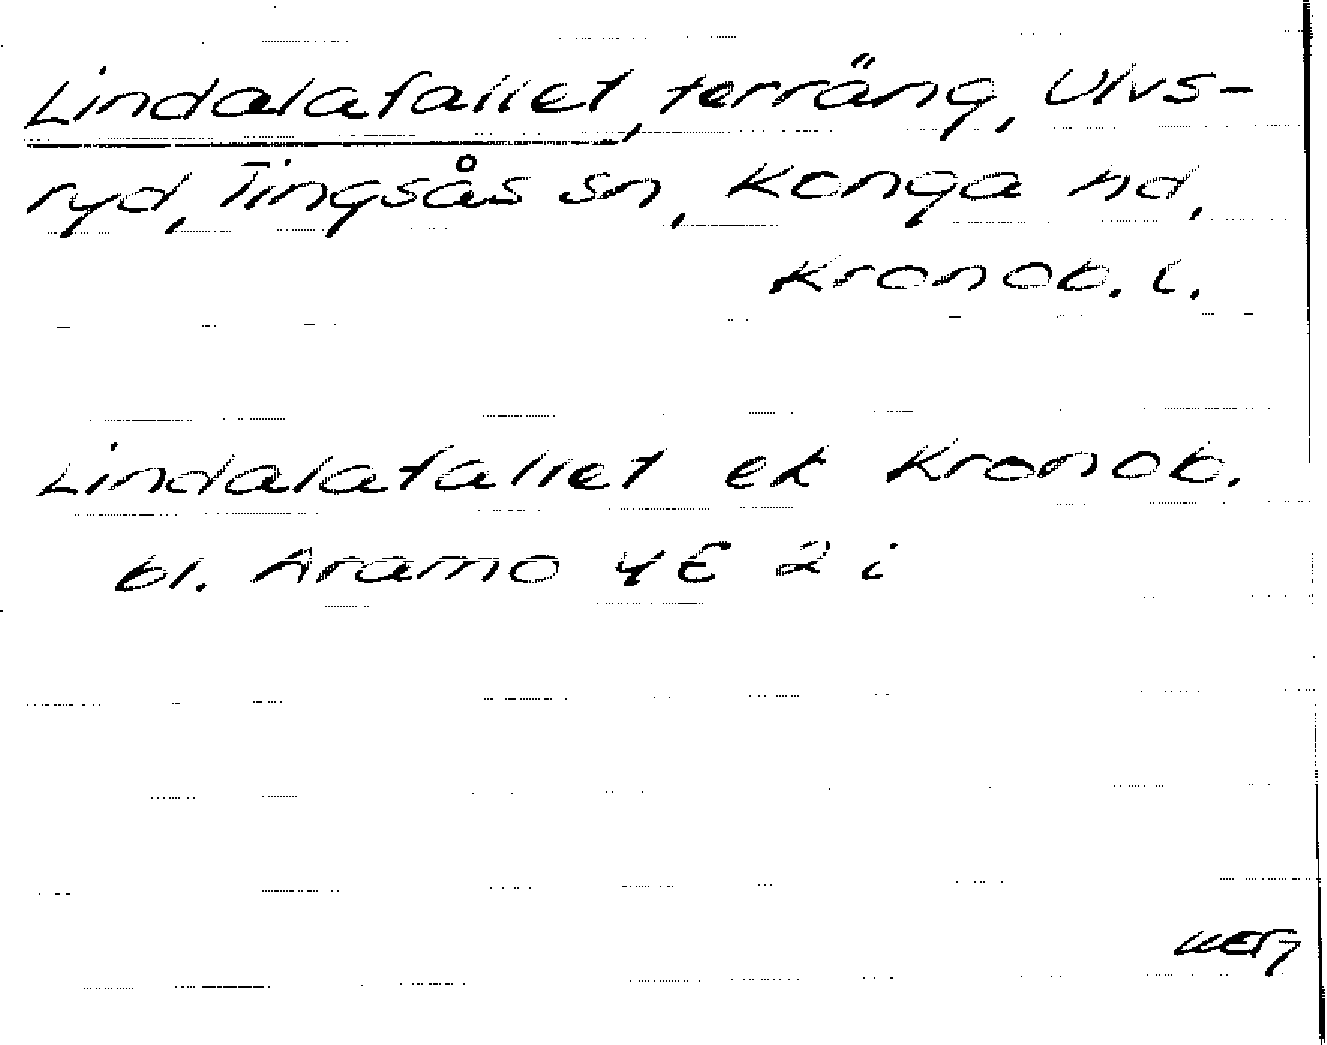 Lindalafallet, terräng, Ulvs-
ryd, Tingsås sn, Konga hd,
Kronob. l.
Lindalafallet ek Kronob.
bl. Aramo 4 E 2 i